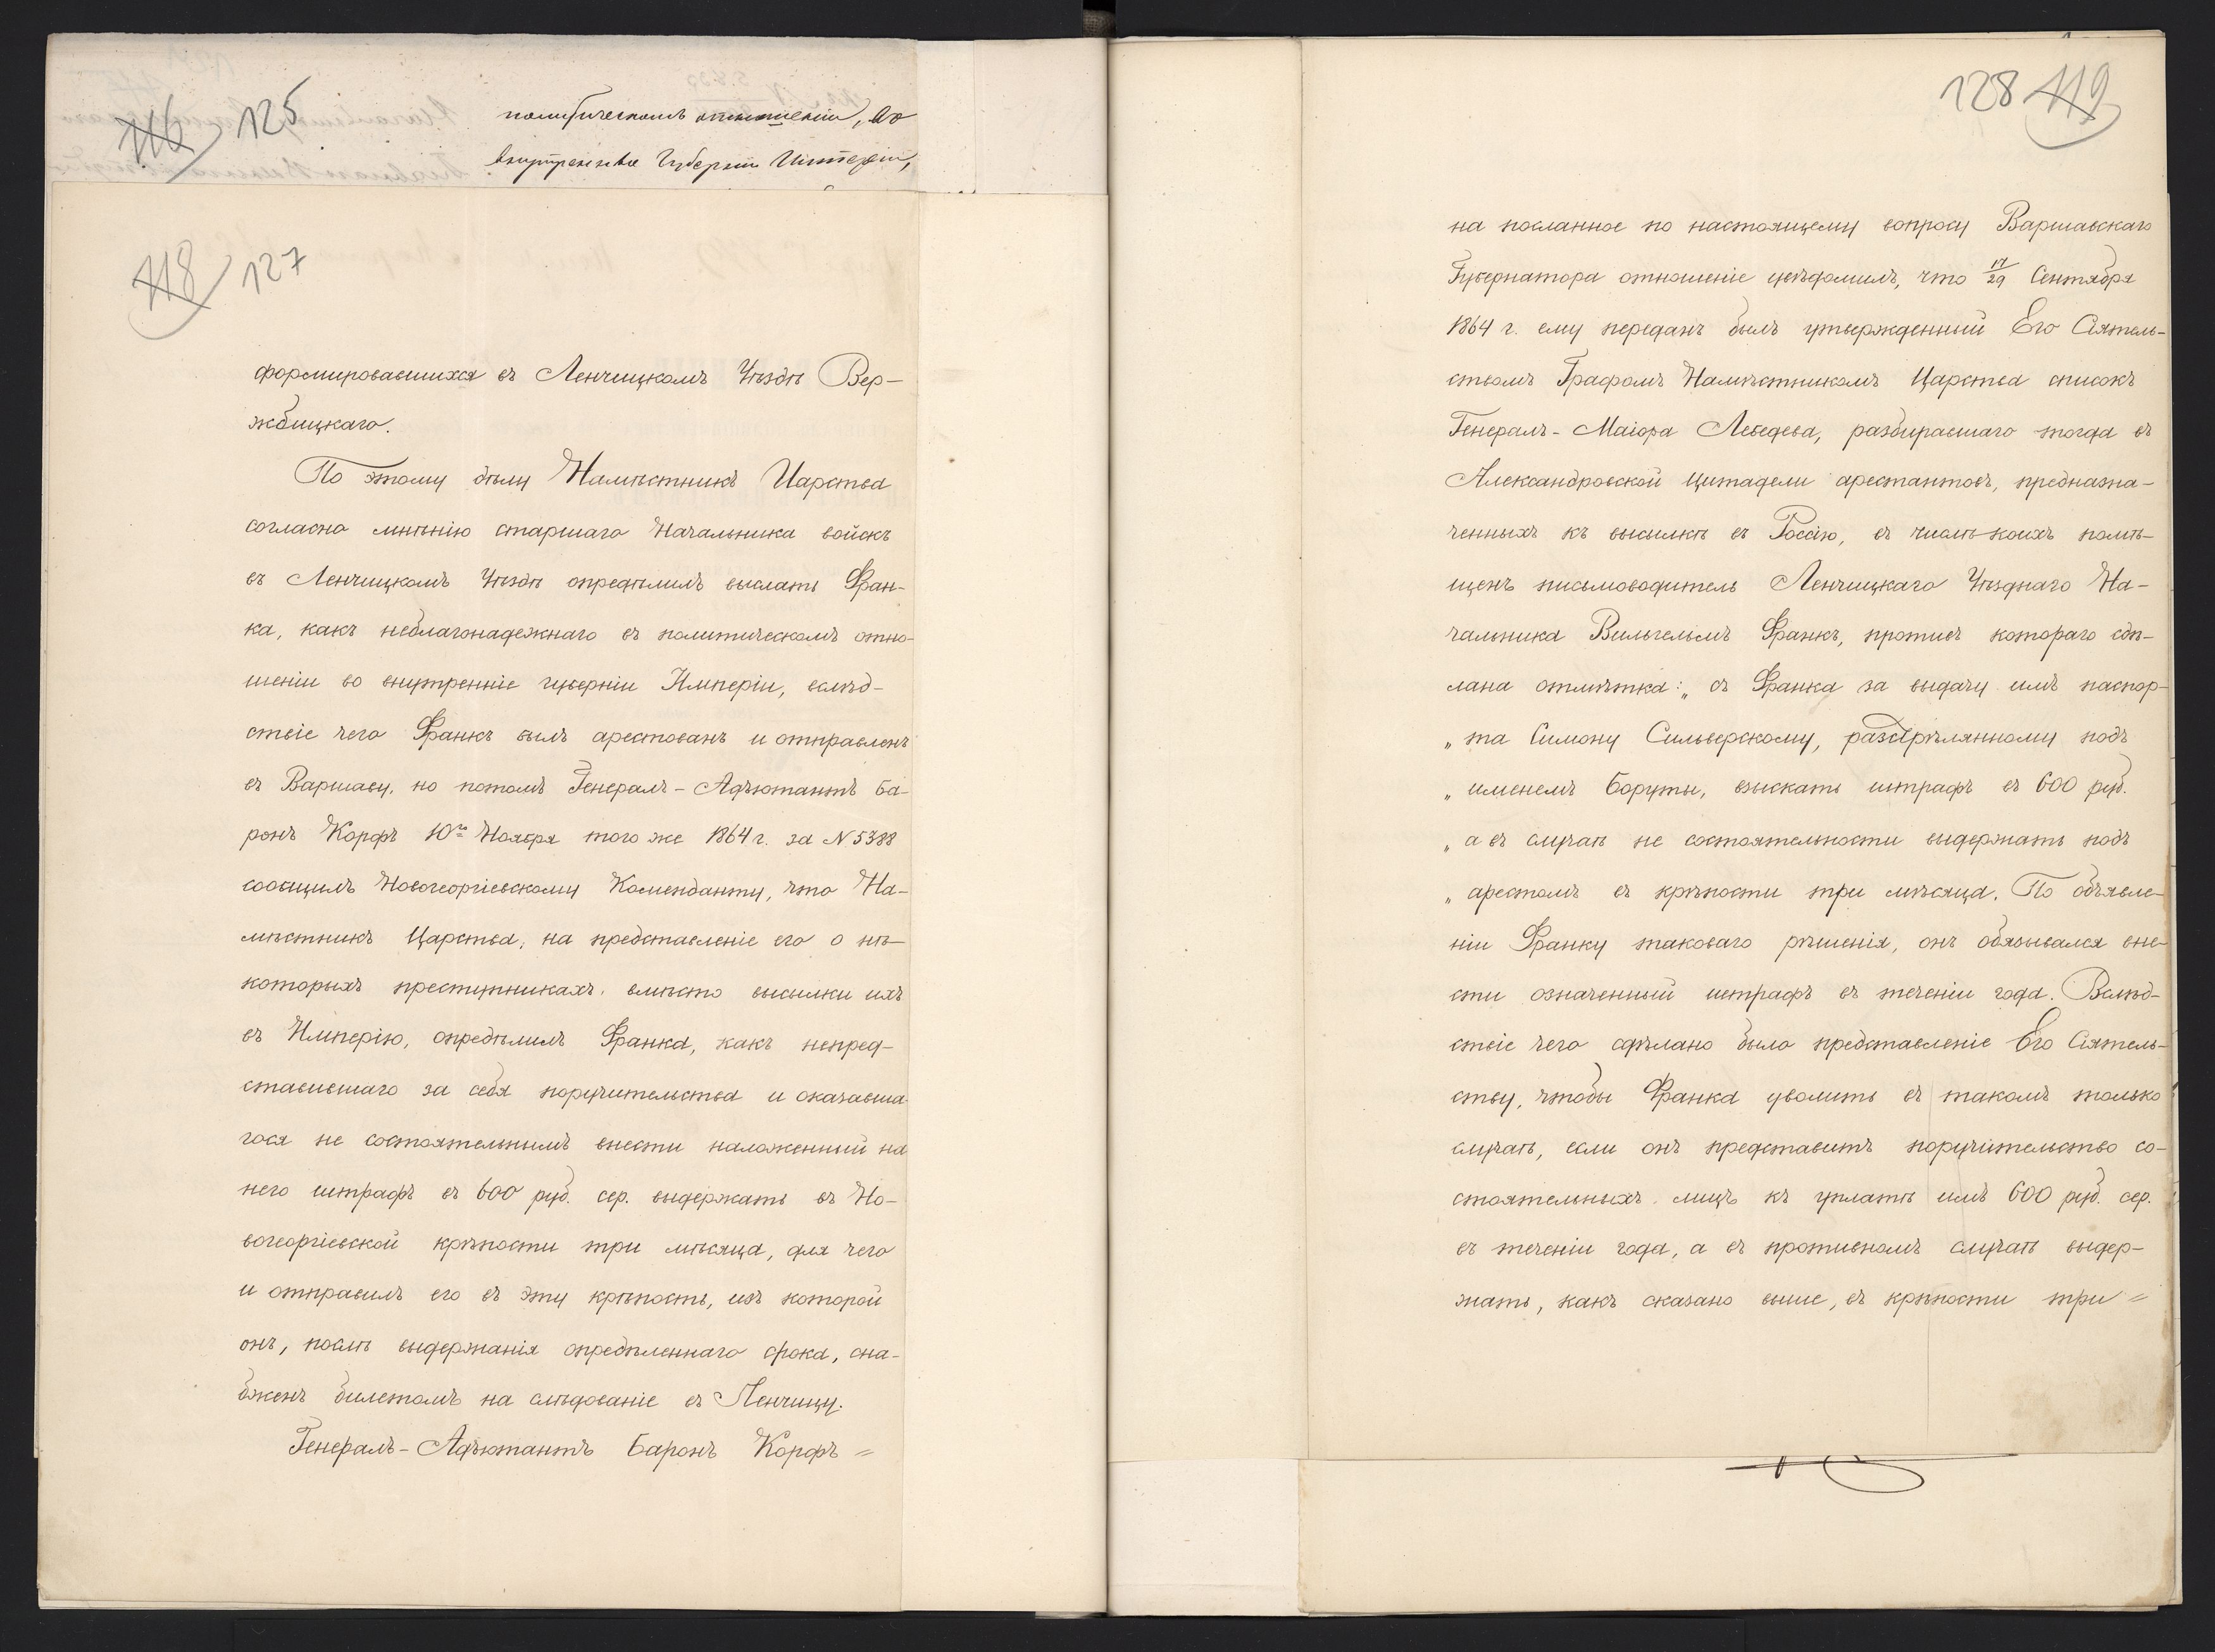 116 125
политическомъ отношеніи, во
внутреннѣе Губерніи Имперіи,
118 127
формировавшихся въ Ленчицкомъ Уѣздѣ Вер-
жбицкаго.
По этому дѣлу Намѣстникъ Царства
согласно мнѣнію старшаго Начальника войскъ
въ Ленчицкомъ Уѣздѣ опредѣлилъ выслать Фран-
ка, какъ неблагонадежнаго въ политическомъ отно-
шеніи во внутренніе губерніи Имперіи, вслѣд-
ствіе чего Франкъ былъ арестованъ и отправленъ
въ Варшаву, но потомъ Генералъ-Адъютантъ Ба-
ронъ Корфъ 10го Ноября того же 1864 г. за N 5388
сообщилъ Новогеоргіевскому Коменданту, что На-
мѣстникъ Царства, на представленіе его о нѣ-
которыхъ преступникахъ, вмѣсто высылки ихъ
въ Имперію, опредѣлилъ Франка, какъ непред-
ставившаго за себя поручительства и оказавша-
гося не состоятельнымъ внести наложенный на
него штрафъ въ 600 руб. сер. выдержать въ Но-
вогеоргіевской крѣпости три мѣсяца, для чего
и отправилъ его въ эту крѣпость, изъ которой
онъ, послѣ выдержанія опредѣленнаго срока, сна-
бженъ билетомъ на слѣдованіе въ Ленчицу.
Генералъ-Адъютантъ Баронъ Корфъ =
128 119
на посланное по настоящему вопросу Варшавскаго
Губернатора отношеніе увѣдомилъ, что 17/29 Сентября
1864 г. ему переданъ былъ утвержденный Его Сіятель-
ствомъ Графомъ Намѣстникомъ Царства списокъ
Генералъ-Маіора Лебедева, разбиравшаго тогда въ
Александровской Цитадели арестантовъ, предназна-
ченныхъ къ высылкѣ въ Россію, въ числѣ коихъ помѣ-
щенъ письмоводитель Ленчицкаго Уѣзднаго На-
чальника Вильгельмъ Франкъ, противъ котораго сдѣ-
лана отмѣтка: „съ Франка за выдачу имъ паспор-
„та Симону Сильверскому, разстрѣлянному подъ
„именемъ Боруты, взыскать штрафъ въ 600 руб.
„а въ случаѣ не состоятельности выдержать подъ
„арестомъ въ крѣпости три мѣсяца. По объявле-
ніи Франку таковаго рѣшенія, онъ обязывался вне-
сти означенный штрафъ въ теченіи года. Вслѣд-
ствіе чего сдѣлано было представленіе Его Сіятель-
ству, чтобы Франка уволить въ такомъ только
случаѣ, если онъ представитъ поручительство со-
стоятельныхъ лицъ къ уплатѣ имъ 600 руб. сер.
въ теченіи года, а въ противномъ случаѣ выдер-
жать, какъ сказано выше, въ крѣпости три =